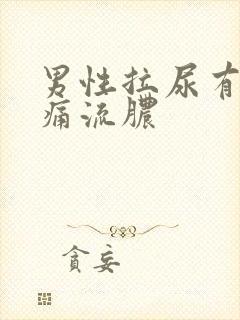 男性拉尿有
痛流脓
贪妄